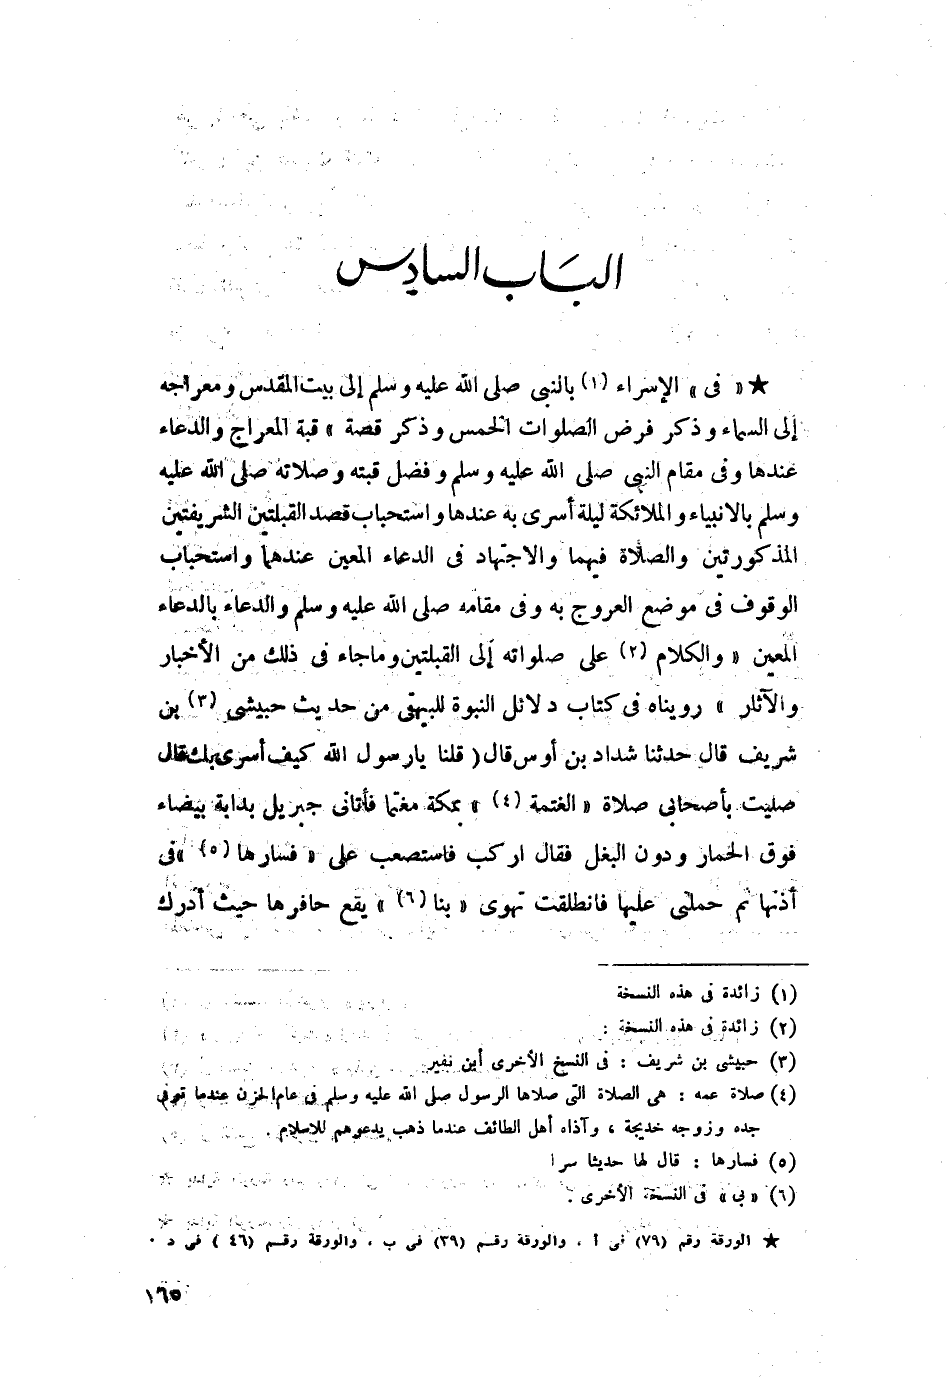 الباب السادس
★« فى » الإسراء (١) بالنبى صلى الله عليه وسلم إلى بيت المقدس ومعراجه
إلى السماء وذكر فرض الصلوات الخمس وذكر قصة » قبة المعراج والدعاء
عندها وفى مقام النبى صلى الله عليه وسلم وفضل قبته وصلاته صلى الله عليه
وسلم بالانبياء والملائكة ليلة أسرى به عندها واستحباب قصد القبلتين الشريفتين
المذكورتين والصلاة فيهما والاجتهاد فى الدعاء المعين عندهما واستحباب
الوقوف فى موضع العروج به وفى مقامه صلى الله عليه وسلم والدعاء بالدعاء
المعين « والكلام (٢) على صلواته إلى القبلتين وماجاء فى ذلك من الأخبار
والآثار » رويناه فى كتاب دلائل النبوة للبيهقى من حديث حبيشى (٣) بن
شريف قال حدثنا شداد بن أوس قال ( قلنا يارسول الله كيف أسرى بك قال
صليت بأصحابى صلاة « الغتمة (٤) » بمكة مغتما فأتانى جبريل بدابة بيضاء
فوق الحمار ودون البغل فقال اركب فاستصعب على « فسارها (٥) »فى
أذنها ثم حملنى عليها فانطلقت تهوى « بنا (٦) » يقع حافرها حيث أدرك
(١) زائدة فى هذه النسخة
(٢) زائدة فى هذه النسخة :
(٣) حبيشى بن شريف : فى النسخ الأخرى أبن نفير
(٤) صلاة عمه : هى الصلاة التى صلاها الرسول صلى الله عليه وسلم فى عام الحزن عندما توفى
جده وزوجه خديجة ، وآذاه أهل الطائف عندما ذهب يدعوهم للاسلام .
(٥) فسارها : قال لها حديثا سرا
(٦) « بى » فى النسخة الأخرى .
★ الورقة رقم (٧٩) فى أ ، والورقة رقم (٣٩) فى ب ، والورقة رقم (٤٦ ) فى د ٠
١٦٥